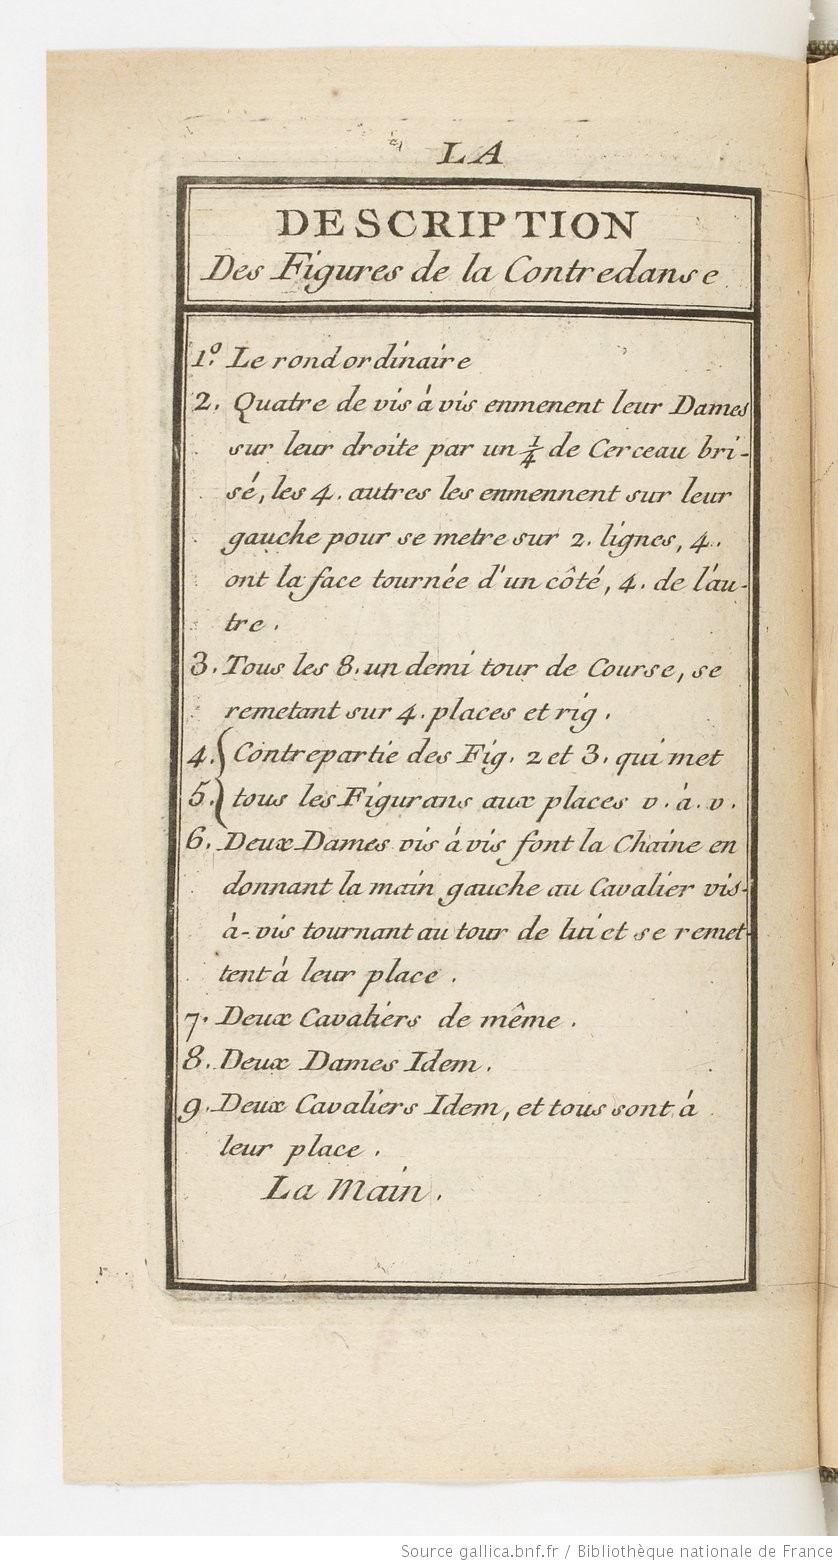 LA
DESCRIPTION
Des Figures de la Contredanse
1.º Le rond ordinaire
2. Quatre de vis à vis enmenent leur Dames
sur leur droite par un ¼ de Cerceau bri-
sé, les 4. autres les enmennent sur leur
gauche pour se metre sur 2. lignes, 4.
ont la face tournée d'un côté, 4. de l'au-
tre.
3. Tous les 8. un demi tour de Course, se
remetant sur 4. places et rig.
4. { Contrepartie des Fig. 2 et 3. qui met
5. } tous les Figurans aux places v. à. v.
6. Deux Dames vis à vis font la Chaine en
donnant la main gauche au Cavalier vis-
à-vis tournant au tour de lui et se remet-
tent à leur place.
7. Deux Cavaliers de même.
8. Deux Dames Idem.
9. Deux Cavaliers Idem, et tous sont à
leur place.
La Main.
Source gallica.bnf.fr / Bibliothèque nationale de France